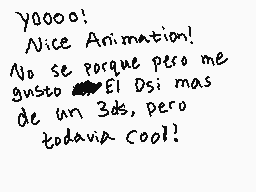 Yoooo!
Nice Animation!
No se porque pero me
gusto El Dsi mas
de un 3ds, pero
todavia cool!